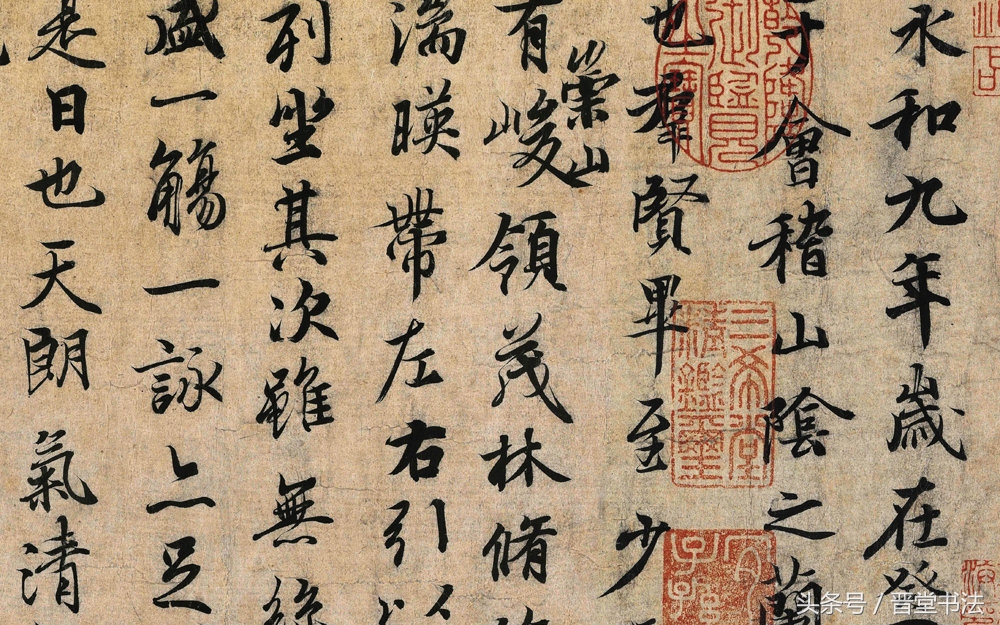 永和九年歲在癸
于會稽山陰之蘭
也羣賢畢至少
有崇山峻領茂林脩
湍暎帶左右引以
列坐其次雖無絲
盛一觴一詠亦足
是日也天朗氣清
三希堂精鑑璽
宜子孫
头条号 / 晋堂书法